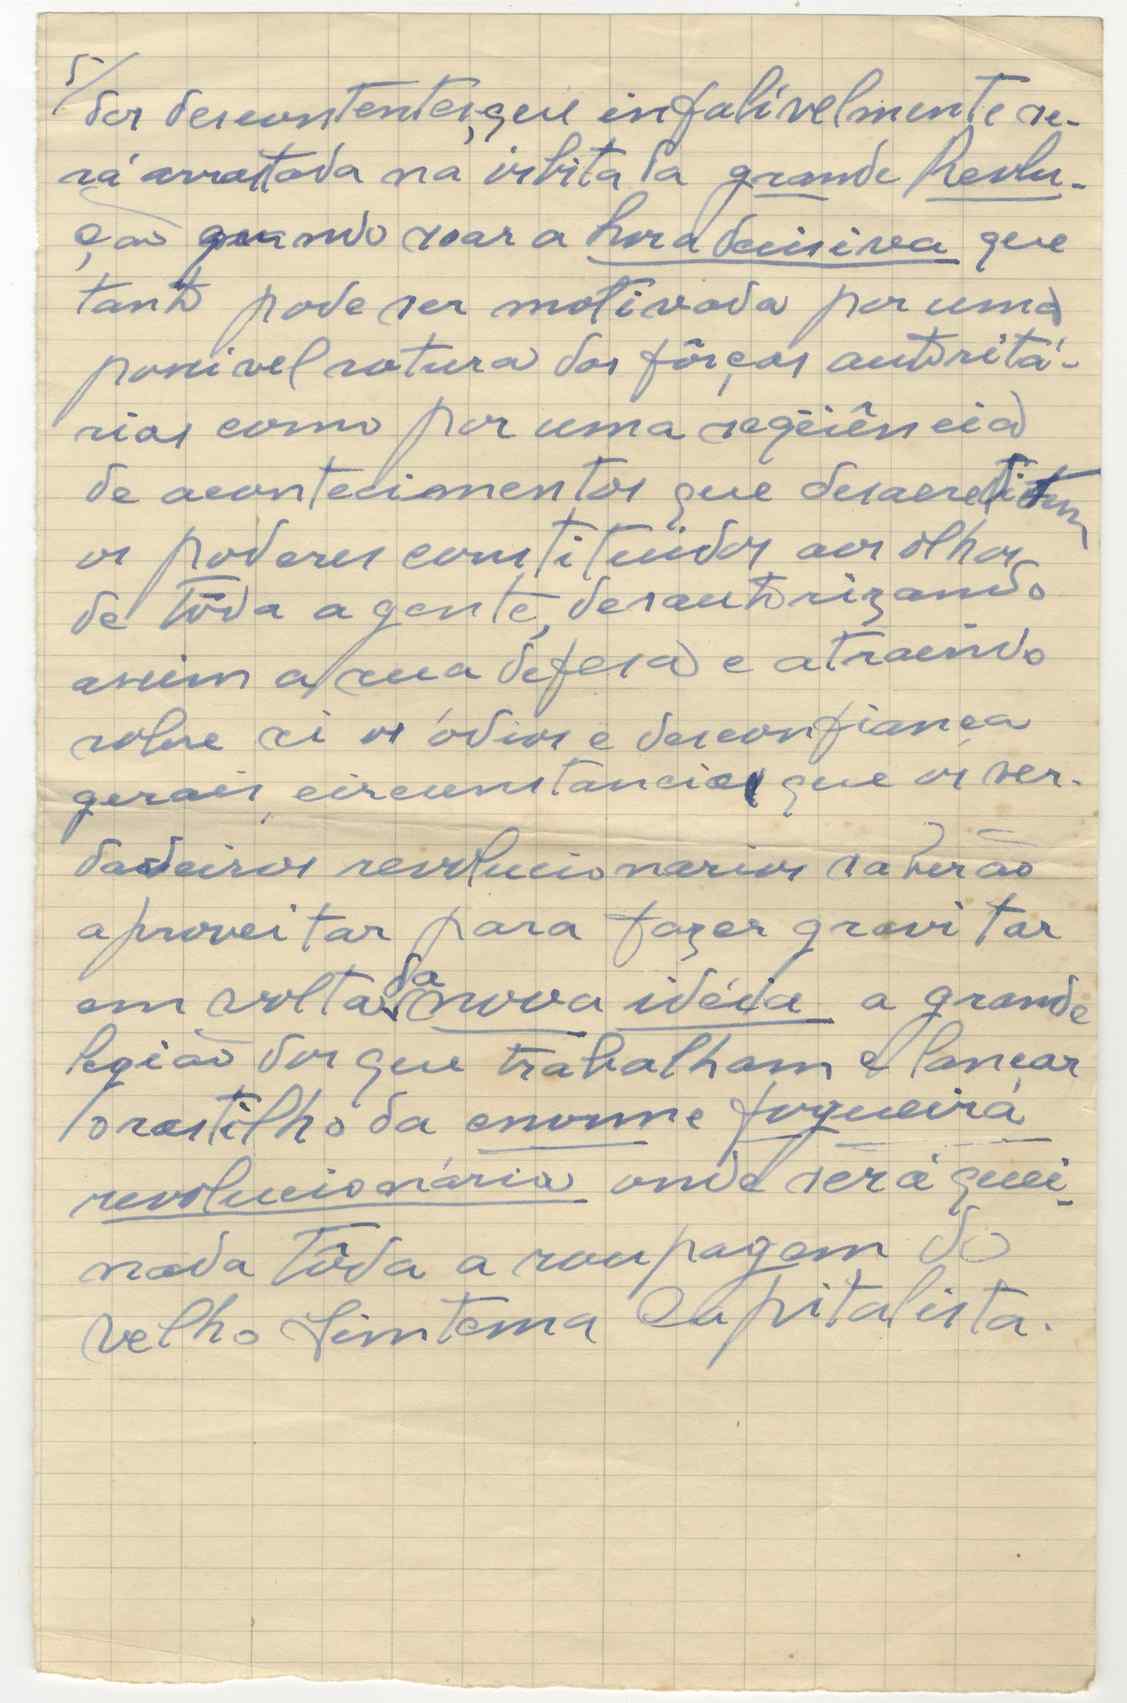 5/
dos descontentes, que infalívelmente se-
rá arrastada na órbita da grande Revolu-
ção quando soar a hora decisiva que
tanto pode ser motivada por uma
possivel rotura das fôrças autoritá-
rias como por uma seqüência
de acontecimentos que desacreditem
os poderes constituidos aos olhos
de tôda a gente, desautorizando
assim a sua defesa e atraíndo
sobre si os ódios e desconfiança
gerais, circunstancias que os ver-
dadeiros revolucionarios saberão
aproveitar para fazer gravitar
em volta da nova idéia a grande
legião dos que trabalham e lançar
o rastilho da enorme fogueira
revolucionária onde será quei-
mada tôda a roupagem do
velho Sistema Capitalista.